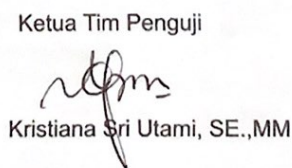 Ketua Tim Penguji
Kristiana Sri Utami, SE.,MM